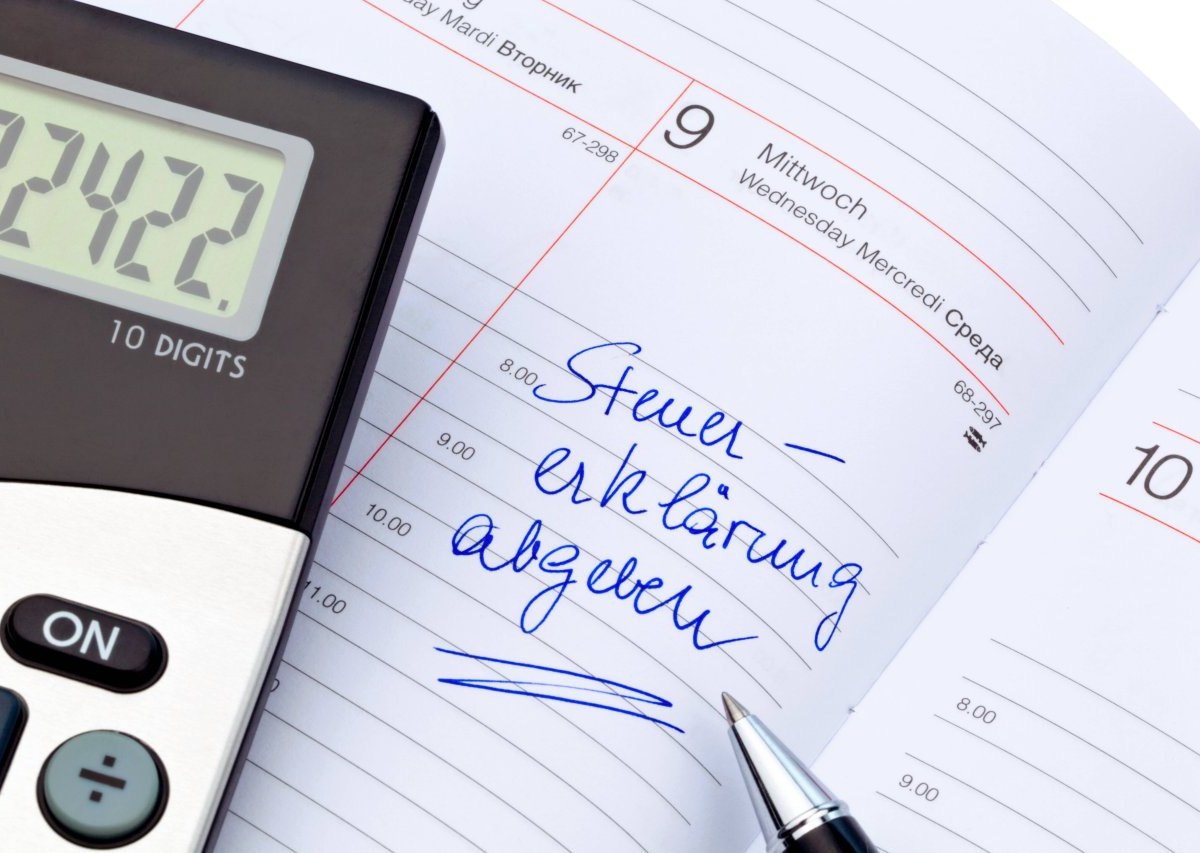 Mardi Вторник
67-298
9
Mittwoch
Wednesday Mercredi Среда
68-297
8.00
9.00
10.00
11.00
Steuer-
erklärung
abgeben
10
8.00
9.00
2422.
10 DIGITS
ON
÷